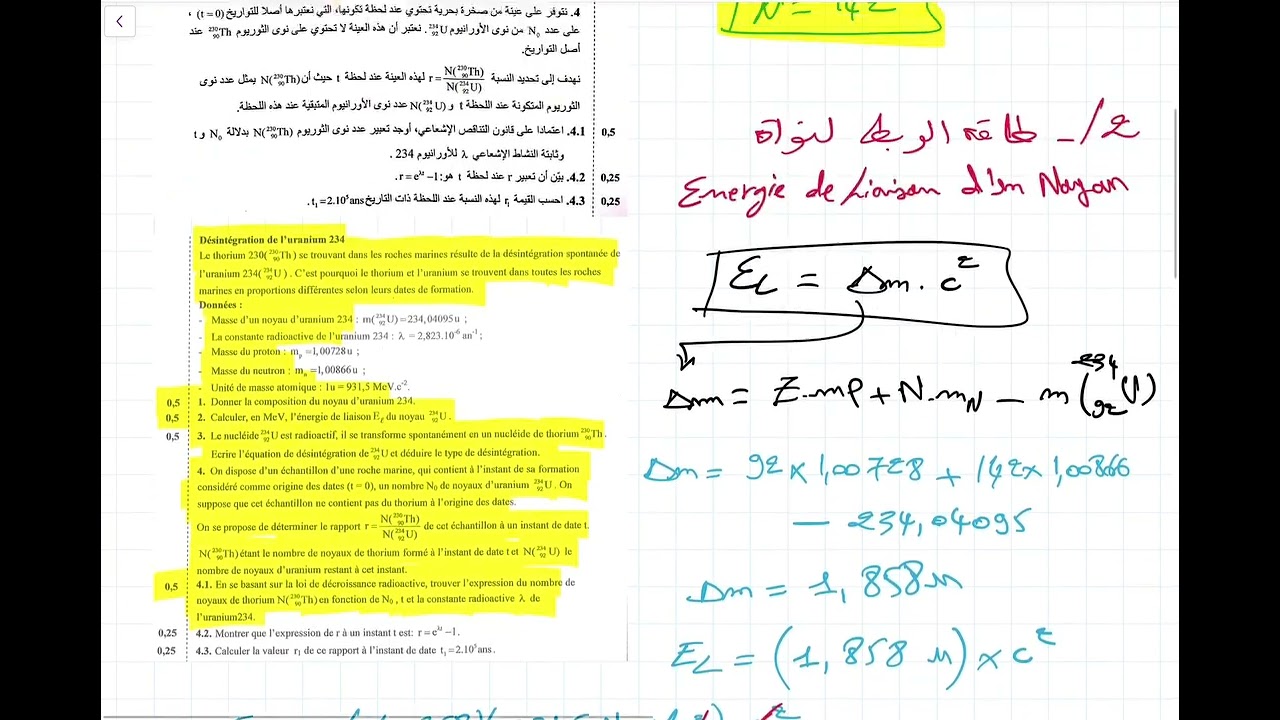 4. نتوفر على عينة من صخرة بحرية تحتوي عند لحظة تكونها، التي نعتبرها أصلا للتواريخ (t = 0) ،
على عدد N₀ من نوى الأورانيوم ²³⁴₉₂U. نعتبر أن هذه العينة لا تحتوي على نوى الثوريوم ²³⁰₉₀Th عند
أصل التواريخ.
نهدف إلى تحديد النسبة r = N(²³⁰₉₀Th)/N(²³⁴₉₂U) لهذه العينة عند لحظة t حيث أن N(²³⁰₉₀Th) يمثل عدد نوى
الثوريوم المتكونة عند اللحظة t و N(²³⁴₉₂U) عدد نوى الأورانيوم المتبقية عند هذه اللحظة.
0,5 4.1. اعتمادا على قانون التناقص الإشعاعي، أوجد تعبير عدد نوى الثوريوم N(²³⁰₉₀Th) بدلالة N₀ و t
وثابتة النشاط الإشعاعي λ للأورانيوم 234 .
0,25 4.2. بيّن أن تعبير r عند لحظة t هو: r = e^λt −1.
0,25 4.3. احسب القيمة r₁ لهذه النسبة عند اللحظة ذات التاريخ t₁ = 2.10⁵ ans.
Désintégration de l'uranium 234
Le thorium 230(²³⁰₉₀Th) se trouvant dans les roches marines résulte de la désintégration spontanée de
l'uranium 234(²³⁴₉₂U). C'est pourquoi le thorium et l'uranium se trouvent dans toutes les roches
marines en proportions différentes selon leurs dates de formation.
Données :
- Masse d'un noyau d'uranium 234 : m(²³⁴₉₂U)=234,04095u ;
- La constante radioactive de l'uranium 234 : λ = 2,823.10⁻⁶ an⁻¹ ;
- Masse du proton : mₚ =1,00728u ;
- Masse du neutron : mₙ =1,00866u ;
- Unité de masse atomique : 1u = 931,5 MeV.c⁻².
0,5 1. Donner la composition du noyau d'uranium 234.
0,5 2. Calculer, en MeV, l'énergie de liaison E_ℓ du noyau ²³⁴₉₂U.
0,5 3. Le nucléide ²³⁴₉₂U est radioactif, il se transforme spontanément en un nucléide de thorium ²³⁰₉₀Th.
Ecrire l'équation de désintégration de ²³⁴₉₂U et déduire le type de désintégration.
4. On dispose d'un échantillon d'une roche marine, qui contient à l'instant de sa formation
considéré comme origine des dates (t = 0), un nombre N₀ de noyaux d'uranium ²³⁴₉₂U. On
suppose que cet échantillon ne contient pas du thorium à l'origine des dates.
On se propose de déterminer le rapport r = N(²³⁰₉₀Th)/N(²³⁴₉₂U) de cet échantillon à un instant de date t.
N(²³⁰₉₀Th) étant le nombre de noyaux de thorium formé à l'instant de date t et N(²³⁴₉₂U) le
nombre de noyaux d'uranium restant à cet instant.
0,5 4.1. En se basant sur la loi de décroissance radioactive, trouver l'expression du nombre de
noyaux de thorium N(²³⁰₉₀Th) en fonction de N₀ , t et la constante radioactive λ de
l'uranium234.
0,25 4.2. Montrer que l'expression de r à un instant t est: r = e^λt −1.
0,25 4.3. Calculer la valeur r₁ de ce rapport à l'instant de date t₁ = 2.10⁵ ans.
N = 142
2/- طاقة الربط لنواة
Energie de Liaison d'un Noyau
E_L = Δm . c²
Δm = Z.mP + N.m_N − m(²³⁴₉₂U)
Δm = 92 × 1,00728 + 142 × 1,00866
− 234,04095
Δm = 1,858 u
E_L = (1,858 u) × c²